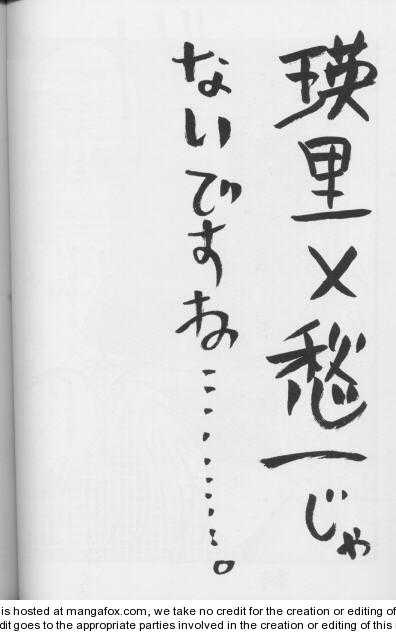 瑛里×愁一じゃ
ないですね…………。
is hosted at mangafox.com, we take no credit for the creation or editing of
dit goes to the appropriate parties involved in the creation or editing of this